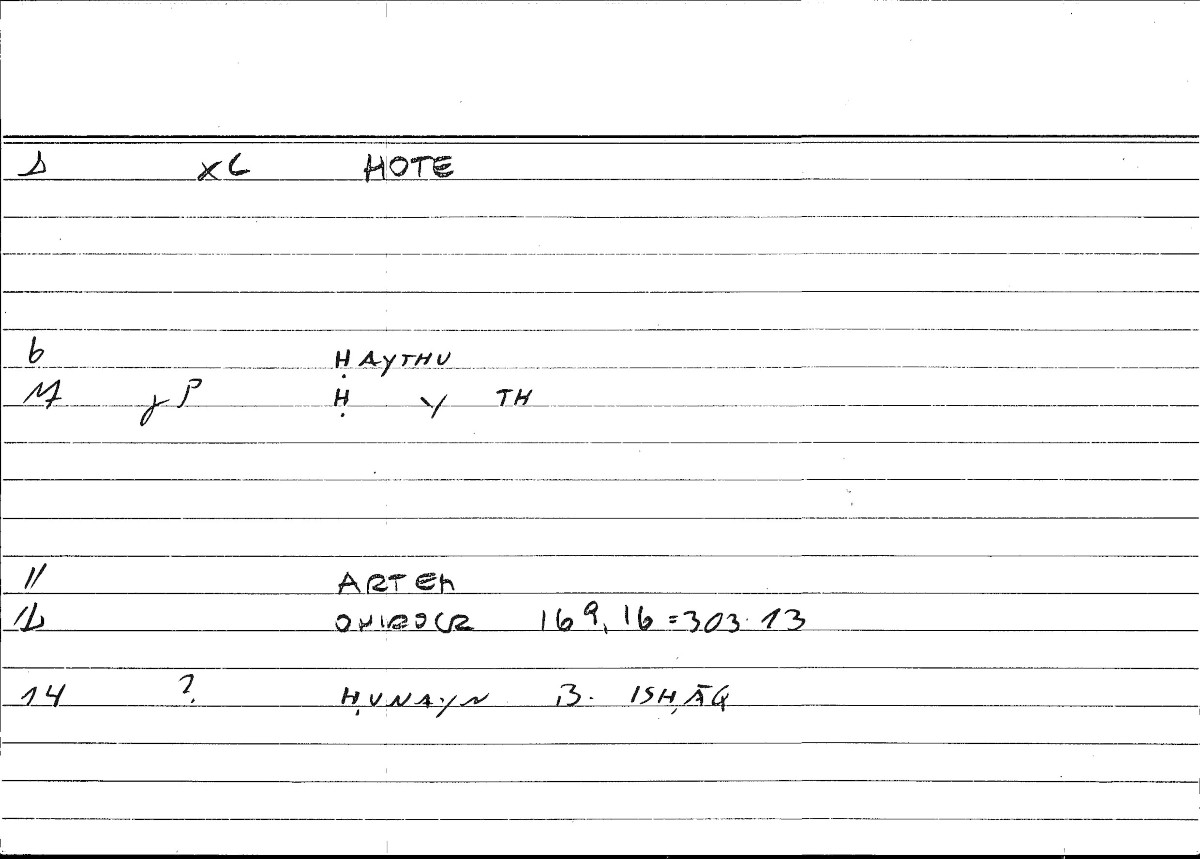 HOTE
6 ḤAYTHU
Ḥ Y TH
11 ARTEM
12 ONIROCR 169,16=303.13
14 ? ḤUNAYN B. ISḤĀQ